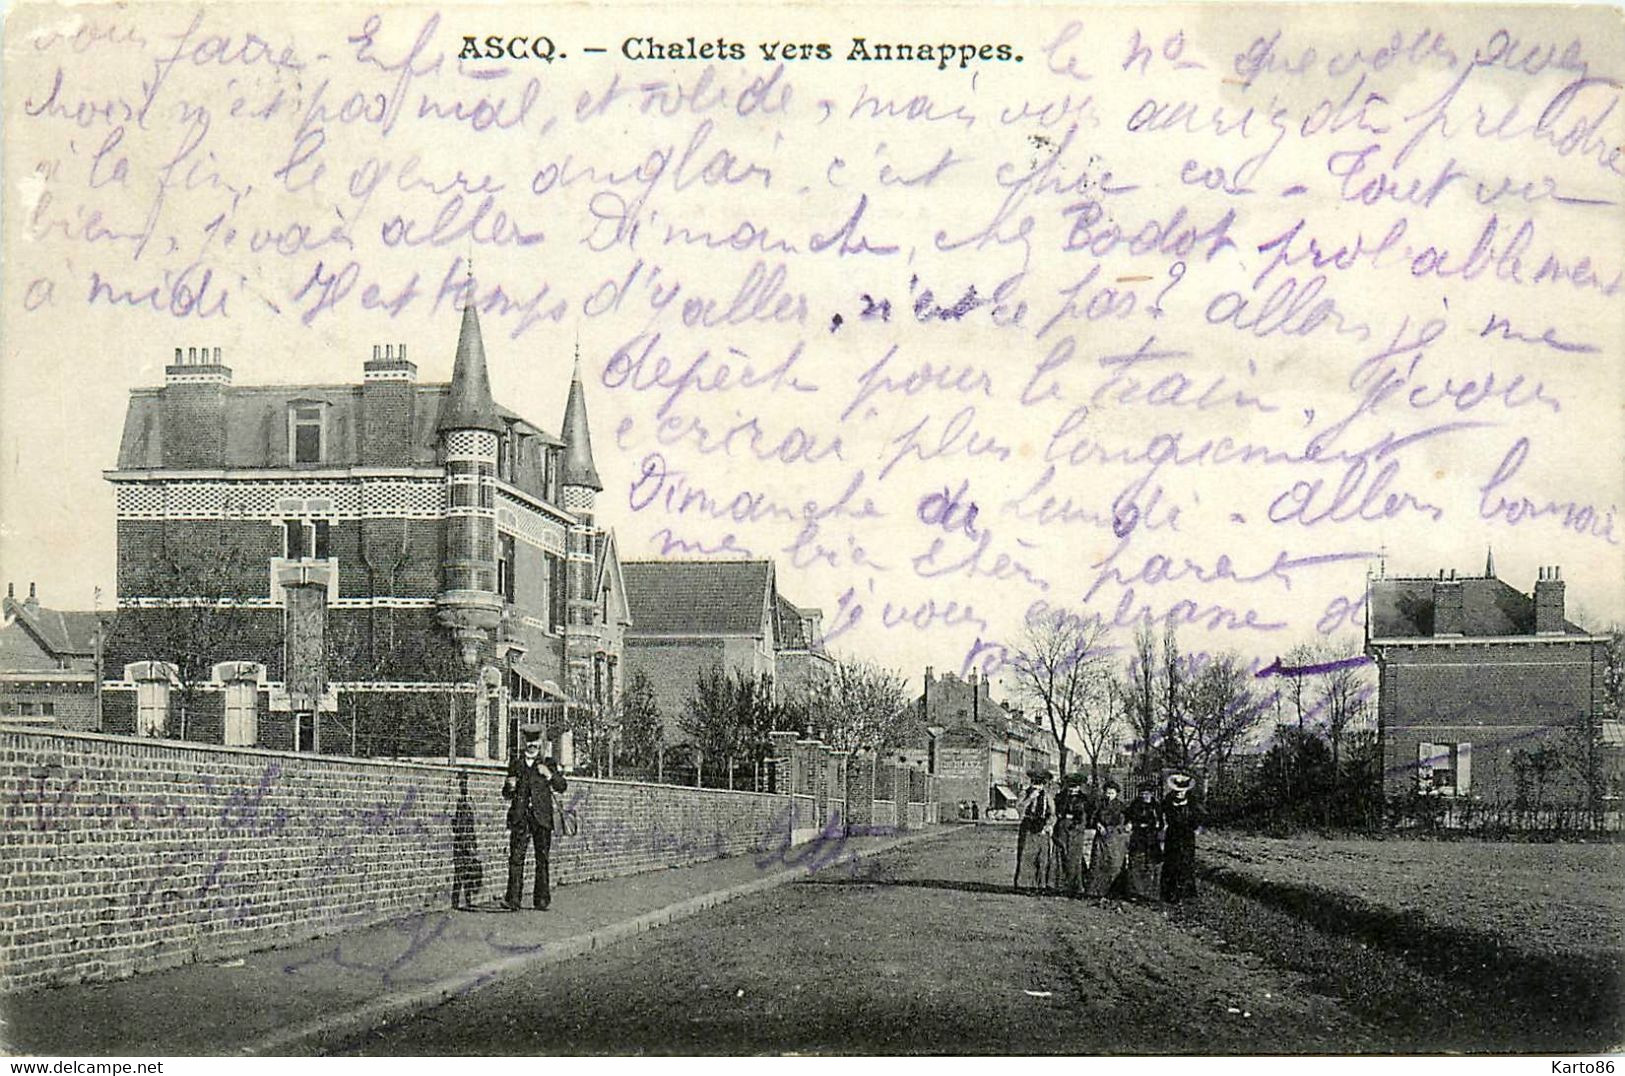 vous faire - Enfin
ASCQ. – Chalets vers Annappes.
le nº que vous avez
choisi n'est pas mal, et solide, mais vous auriez dû prendre
à la fin, le genre anglais c'est chic ça - Tout va
bien, je vais aller Dimanche, chez Bodot probablement
à midi. Il est temps d'y aller, n'est ce pas? allons je me
depèche pour le train, je vous
ecrirai plus longuement
Dimanche ou Lundi - allons bonsoir
mes bien chers parents
je vous embrasse de
tout
Karto86